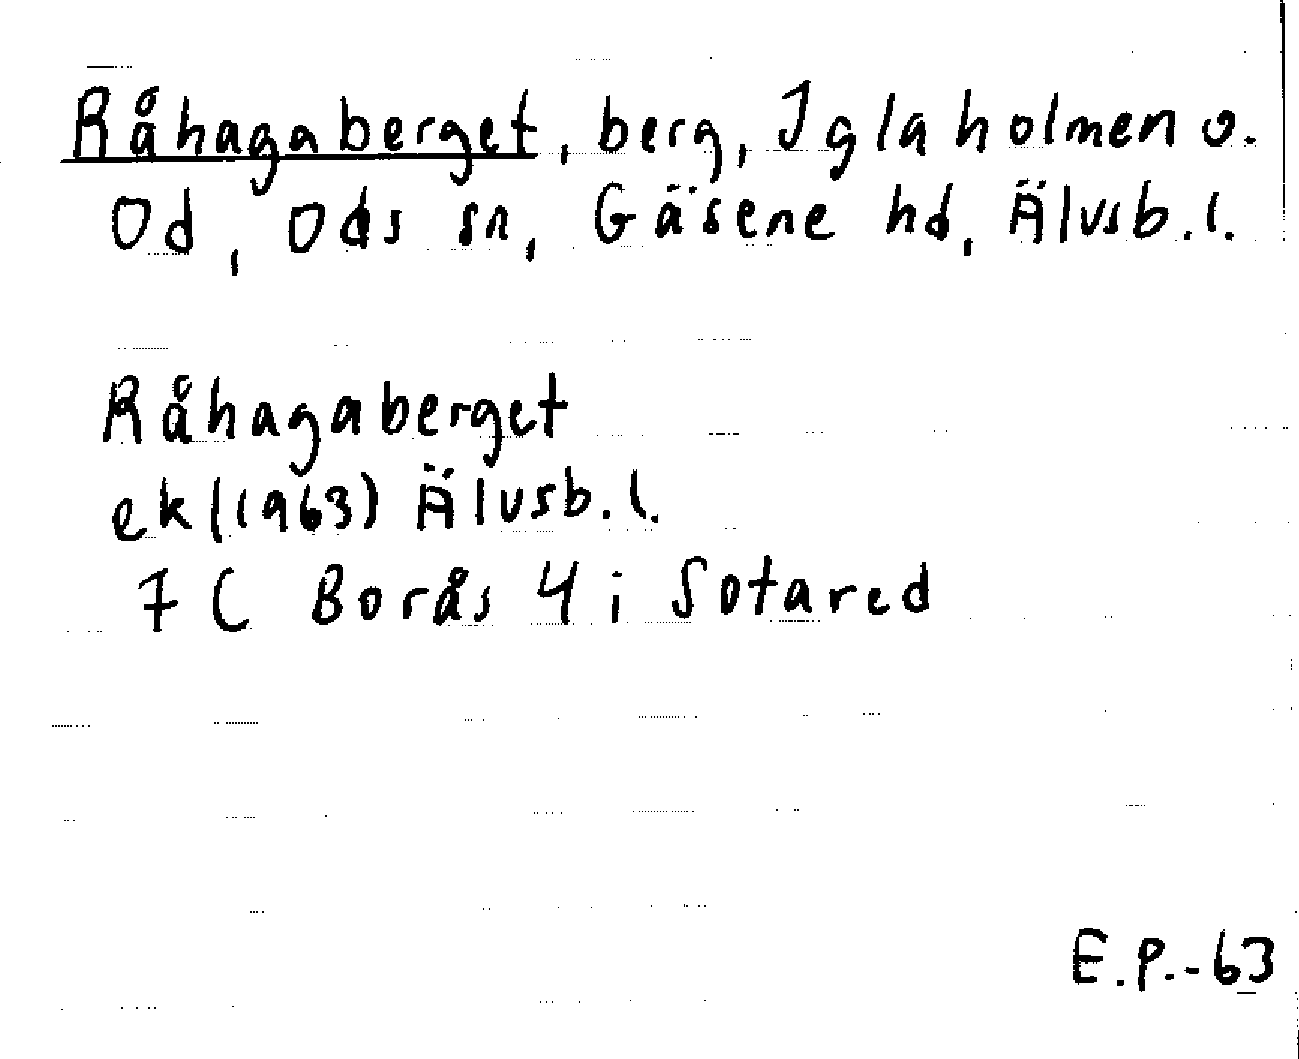 Råhagaberget, berg, Iglaholmen o.
Od, Ods sn, Gäsene hd, Älvsb.l.
Råhagaberget
ek(1963) Älvsb.l.
7C Borås 4 i Sotared
E.P.-63